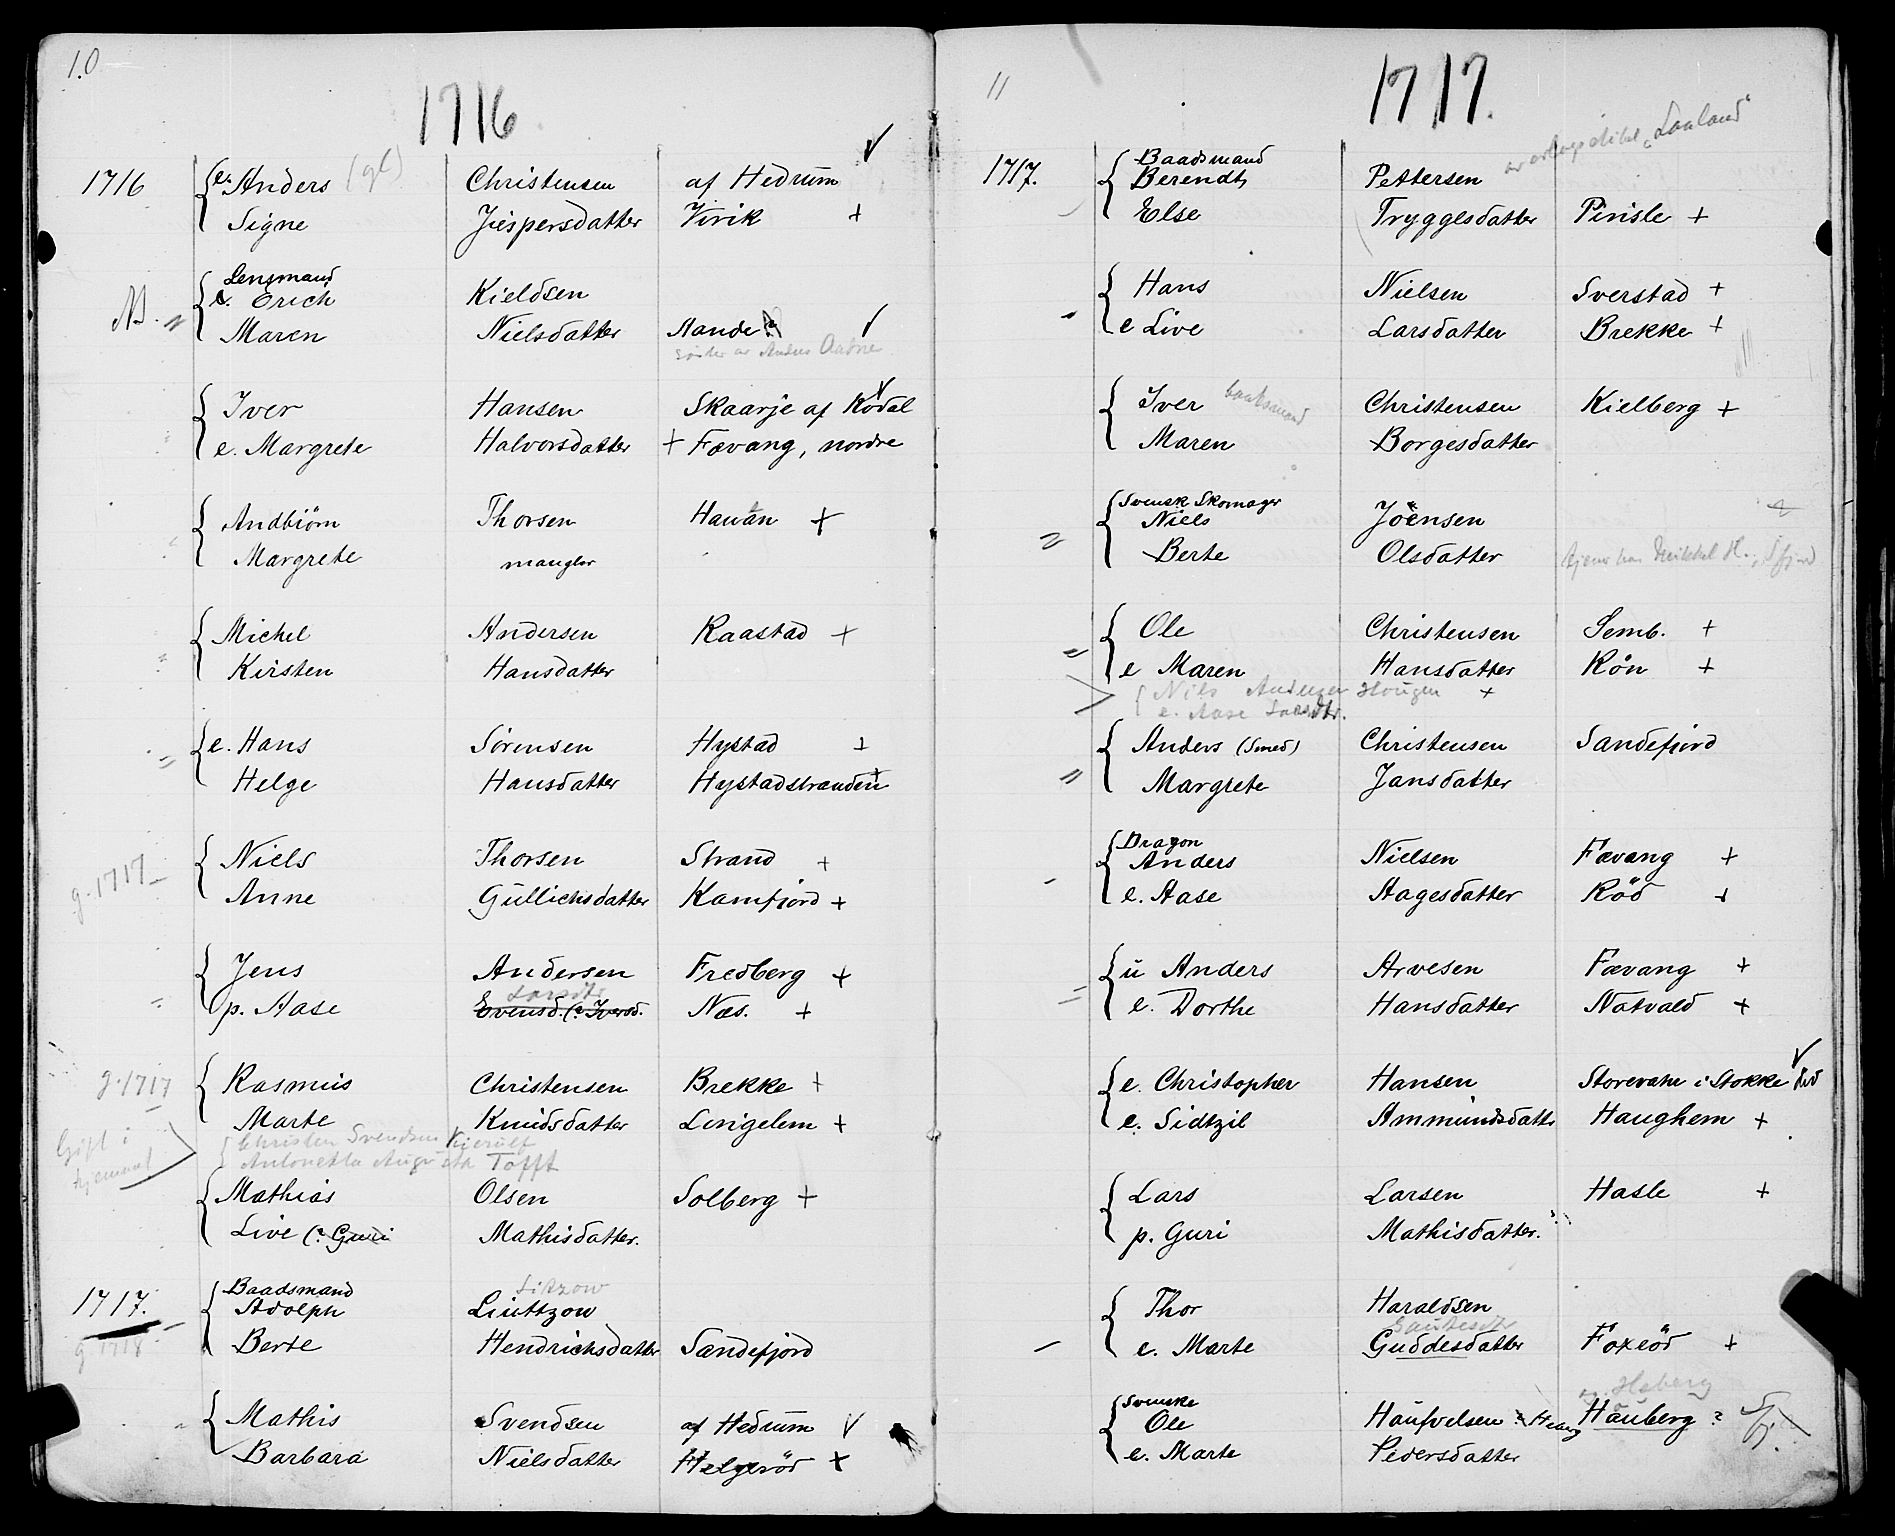 10
1716
1716 { e. Anders (gl) Christensen af Hedrum ✓
Signe Jespersdatter Virik +
Lensmand
NB. = { e. Erich Kieldsen
Maren Nielsdatter Aande ? ✓
Anders
{ Iver Hansen Skaarje af Kodal ✓
e. Margrete Halvorsdatter + Fævang, nordre
{ Andbiörn Thorsen Hawan +
Margrete mangler
{ Michel Andersen Raastad +
Kirsten Hansdatter
{ e. Hans Sörensen Hystad +
= Helge Hansdatter Hystadstranden +
{ Niels Thorsen Strand +
g. 1717 Anne Gullichsdatter Kamfjord +
{ Jens Andersen Fredberg +
Larsdtr
p. Aase Evensd. (? Iversd. Næs. +
g. 1717 { Rasmus Christensen Brekke +
Marte Knudsdatter Lingelem +
Gift i hjemmet { Christen Svendsen Kierulf
Antonetta Augusta Tofft
{ Mathias Olsen Solberg +
Live (? Guri Mathisdatter.
Baadsmand Litzow
1717. { Adolph Liuttzow
g 1718 Berte Hendrichsdatter Sandefjord
{ Mathis Svendsen af Hedrum ✓
Barbara Nielsdatter Helgeröd +
11
1717.
"Laaland"
Baadsmand
1717. { Berendt Pettersen
Else Tryggesdatter Pirisle +
{ Hans Nielsen Sverstad +
e Live Larsdatter Brekke +
{ Iver baatsmand Christensen Kielberg +
Maren Borgesdatter
Svensk Skomager
{ Niels Jöensen +
= Berte Olsdatter tjener hos Mikkel H., Sfjord
{ Ole Christensen Semb. +
= e Maren Hansdatter Rön +
{ Nils Andersen Hougen +
e. Aase Larsdtr.
{ Anders (Smed) Christensen Sandefjord
= Margrete Jansdatter
Dragon
{ Anders Nielsen Fævang +
e. Aase Aagesdatter Röd +
{ u Anders Arvesen Fævang +
= e. Dorthe Hansdatter Natvald +
{ e. Christopher Hansen Storevahr i Stokke ✓
e. Sidtzil Ammundsdattr Haughem +
{ Lars Larsen Hasle +
p. Guri Mathisdatter.
{ Thor Haraldsen
Gautesdtr
e. Marte Guddesdatter Foxeöd +
Svenske Haberg
{ Ole Haufvelsen ? Hauberg ? Sfj.
e. Marte Pedersdatter